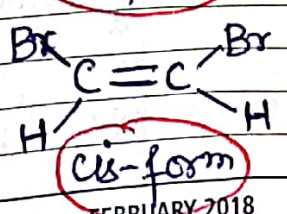 Br Br
C = C
H H
cis-form
FEBRUARY 2018